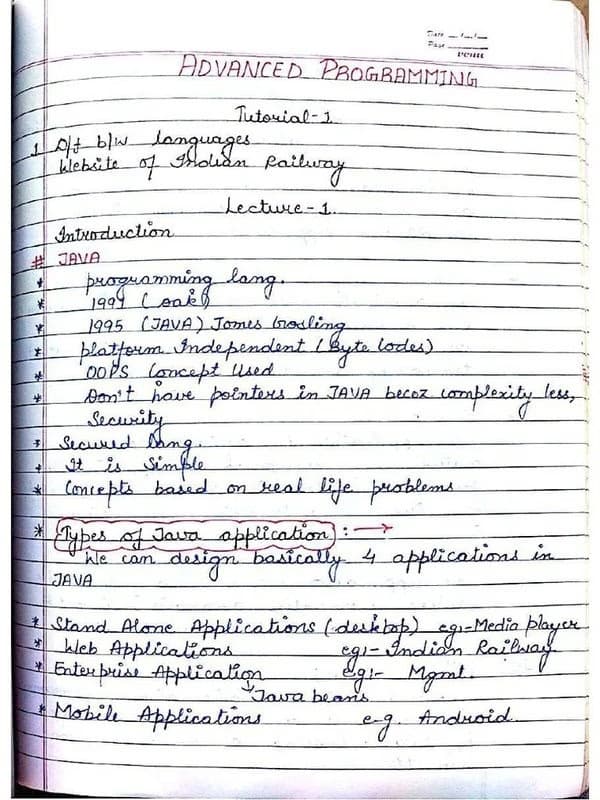 Date __/__/__
Page ______
ADVANCED PROGRAMMING
Tutorial-1
1 D/f b/w languages
Website of Indian Railway
Lecture-1.
Introduction
# JAVA
* programming lang.
* 1991 (oak)
* 1995 (JAVA) James Gosling
* platform Independent (Byte Codes)
* OOPS Concept Used
* Don't have pointers in JAVA becoz complexity less,
Security
* Secured lang.
* It is Simple
* Concepts based on real life problems
* Types of Java application :- →
We can design basically 4 applications in
JAVA
* Stand Alone Applications (desktop) eg:-Media player
* Web Applications eg:- Indian Railway
* Enterprise Application eg:- Mgmt.
↳ Java beans
* Mobile Applications e-g. Android